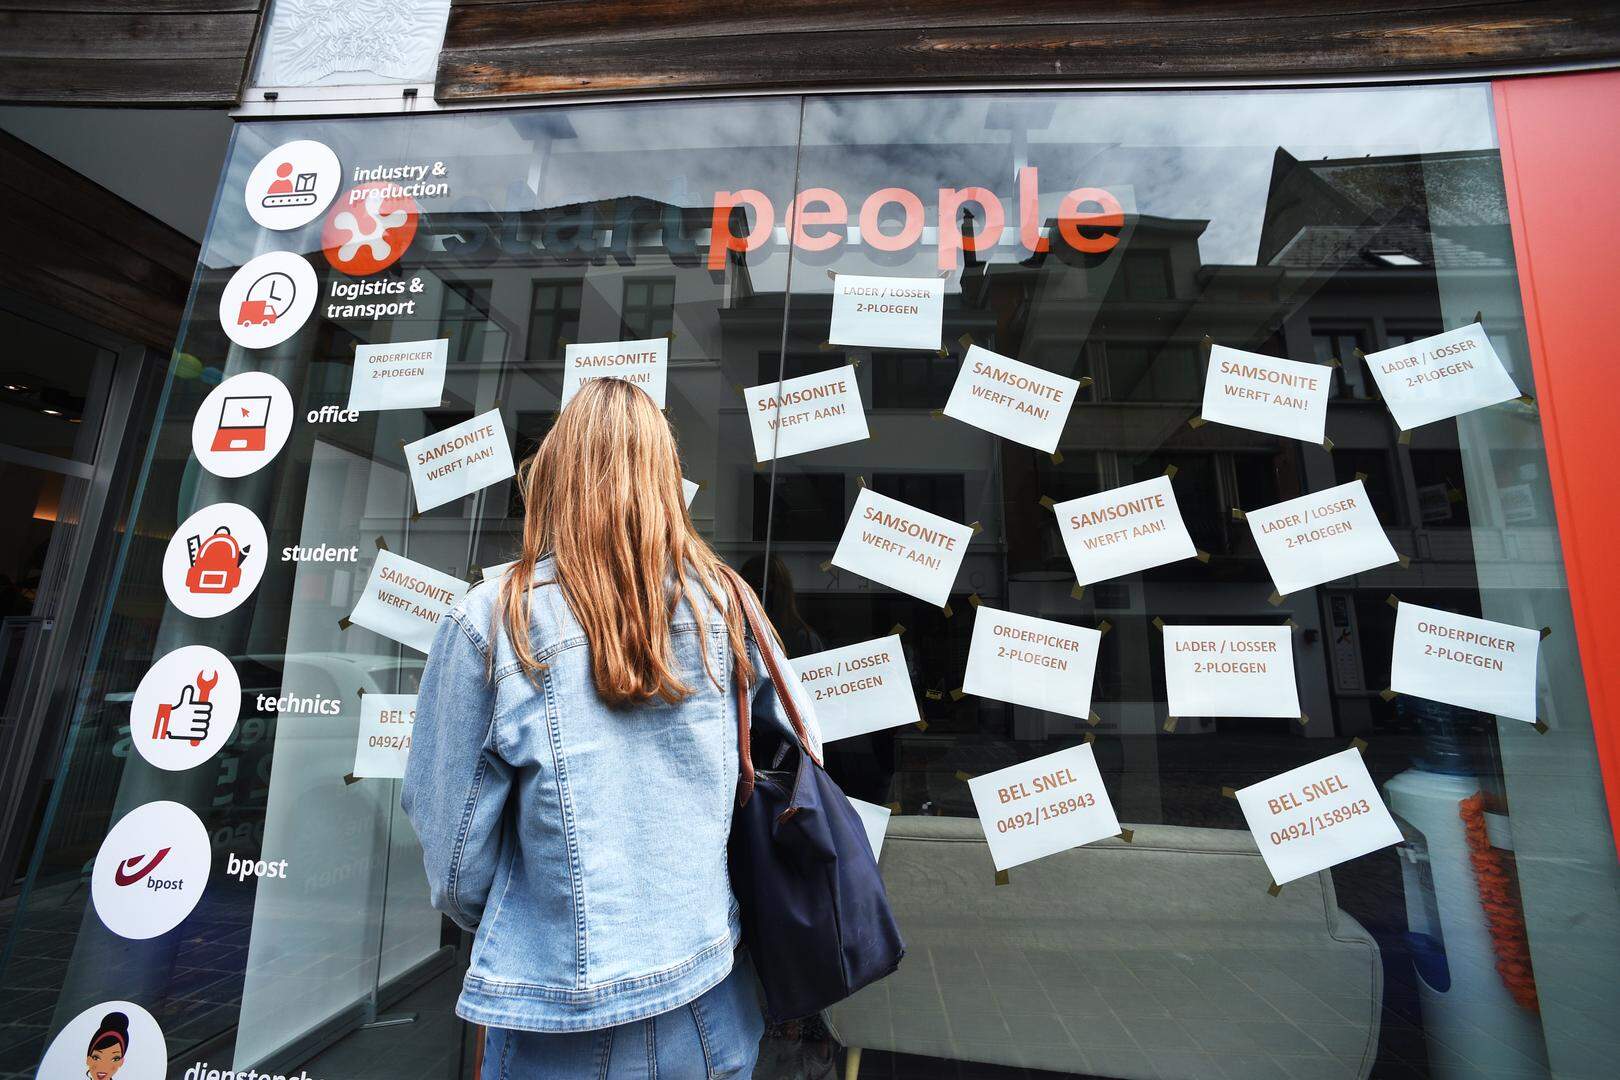 industry &
production
startpeople
logistics &
transport
office
student
technics
bpost
bpost
LADER / LOSSER
2-PLOEGEN
ORDERPICKER
2-PLOEGEN
SAMSONITE
WERFT AAN!
SAMSONITE
WERFT AAN!
SAMSONITE
WERFT AAN!
SAMSONITE
WERFT AAN!
LADER / LOSSER
2-PLOEGEN
SAMSONITE
WERFT AAN!
SAMSONITE
WERFT AAN!
SAMSONITE
WERFT AAN!
LADER / LOSSER
2-PLOEGEN
SAMSONITE
WERFT AAN!
LADER / LOSSER
2-PLOEGEN
ORDERPICKER
2-PLOEGEN
LADER / LOSSER
2-PLOEGEN
ORDERPICKER
2-PLOEGEN
BEL S
0492/1
BEL SNEL
0492/158943
BEL SNEL
0492/158943